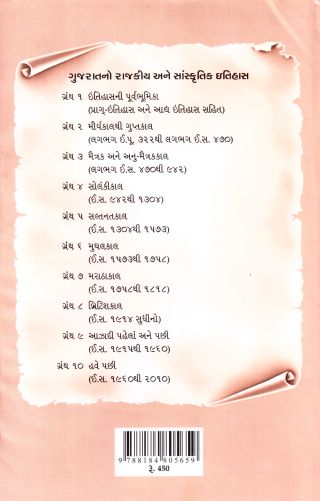 ગુજરાતનો રાજકીય અને સાંસ્કૃતિક ઇતિહાસ
ગ્રંથ ૧ ઇતિહાસની પૂર્વભૂમિકા
(પ્રાગ્-ઇતિહાસ અને આદ્ય ઇતિહાસ સહિત)
ગ્રંથ ૨ મૌર્યકાલથી ગુપ્તકાલ
(લગભગ ઈ.પૂ. ૩૨૨થી લગભગ ઈ.સ. ૪૭૦)
ગ્રંથ ૩ મૈત્રક અને અનુ-મૈત્રકકાલ
(લગભગ ઈ.સ. ૪૭૦થી ૯૪૨)
ગ્રંથ ૪ સોલંકીકાલ
(ઈ.સ. ૯૪૨થી ૧૩૦૪)
ગ્રંથ ૫ સલ્તનતકાલ
(ઈ.સ. ૧૩૦૪થી ૧૫૭૩)
ગ્રંથ ૬ મુઘલકાલ
(ઈ.સ. ૧૫૭૩થી ૧૭૫૮)
ગ્રંથ ૭ મરાઠાકાલ
(ઈ.સ. ૧૭૫૮થી ૧૮૧૮)
ગ્રંથ ૮ બ્રિટિશકાલ
(ઈ.સ. ૧૯૧૪ સુધીનો)
ગ્રંથ ૯ આઝાદી પહેલાં અને પછી
(ઈ.સ. ૧૯૧૫થી ૧૯૬૦)
ગ્રંથ ૧૦ હવે પછી
(ઈ.સ. ૧૯૬૦થી ૨૦૧૦)
9 788184 805659
રૂ. 450